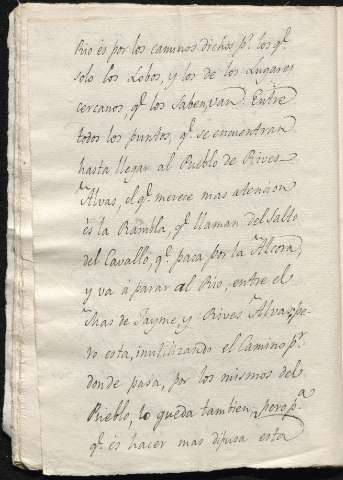 Rio és por los caminos dichos pr. los qe.
solo los Lobos, y los de los Lugares
cercanos, qe. los Saben, van. Entre
todos los puntos, qe. se encuentran
hasta llegar al Pueblo de Rives-
Alvas, el qe. merece mas atencion
es la Rambla, qe. llaman del Salto
del Cavallo, qe. paca por la Alcora,
y vá á parar al Rio, entre el
Mas de Jayme, y Rives Alvas, pe-
ro esta, inutilizando el Camino pr.
donde pasa, por los mismos del
Pueblo, lo queda tambien, pero pa.
qe. és hacer mas difusa esta